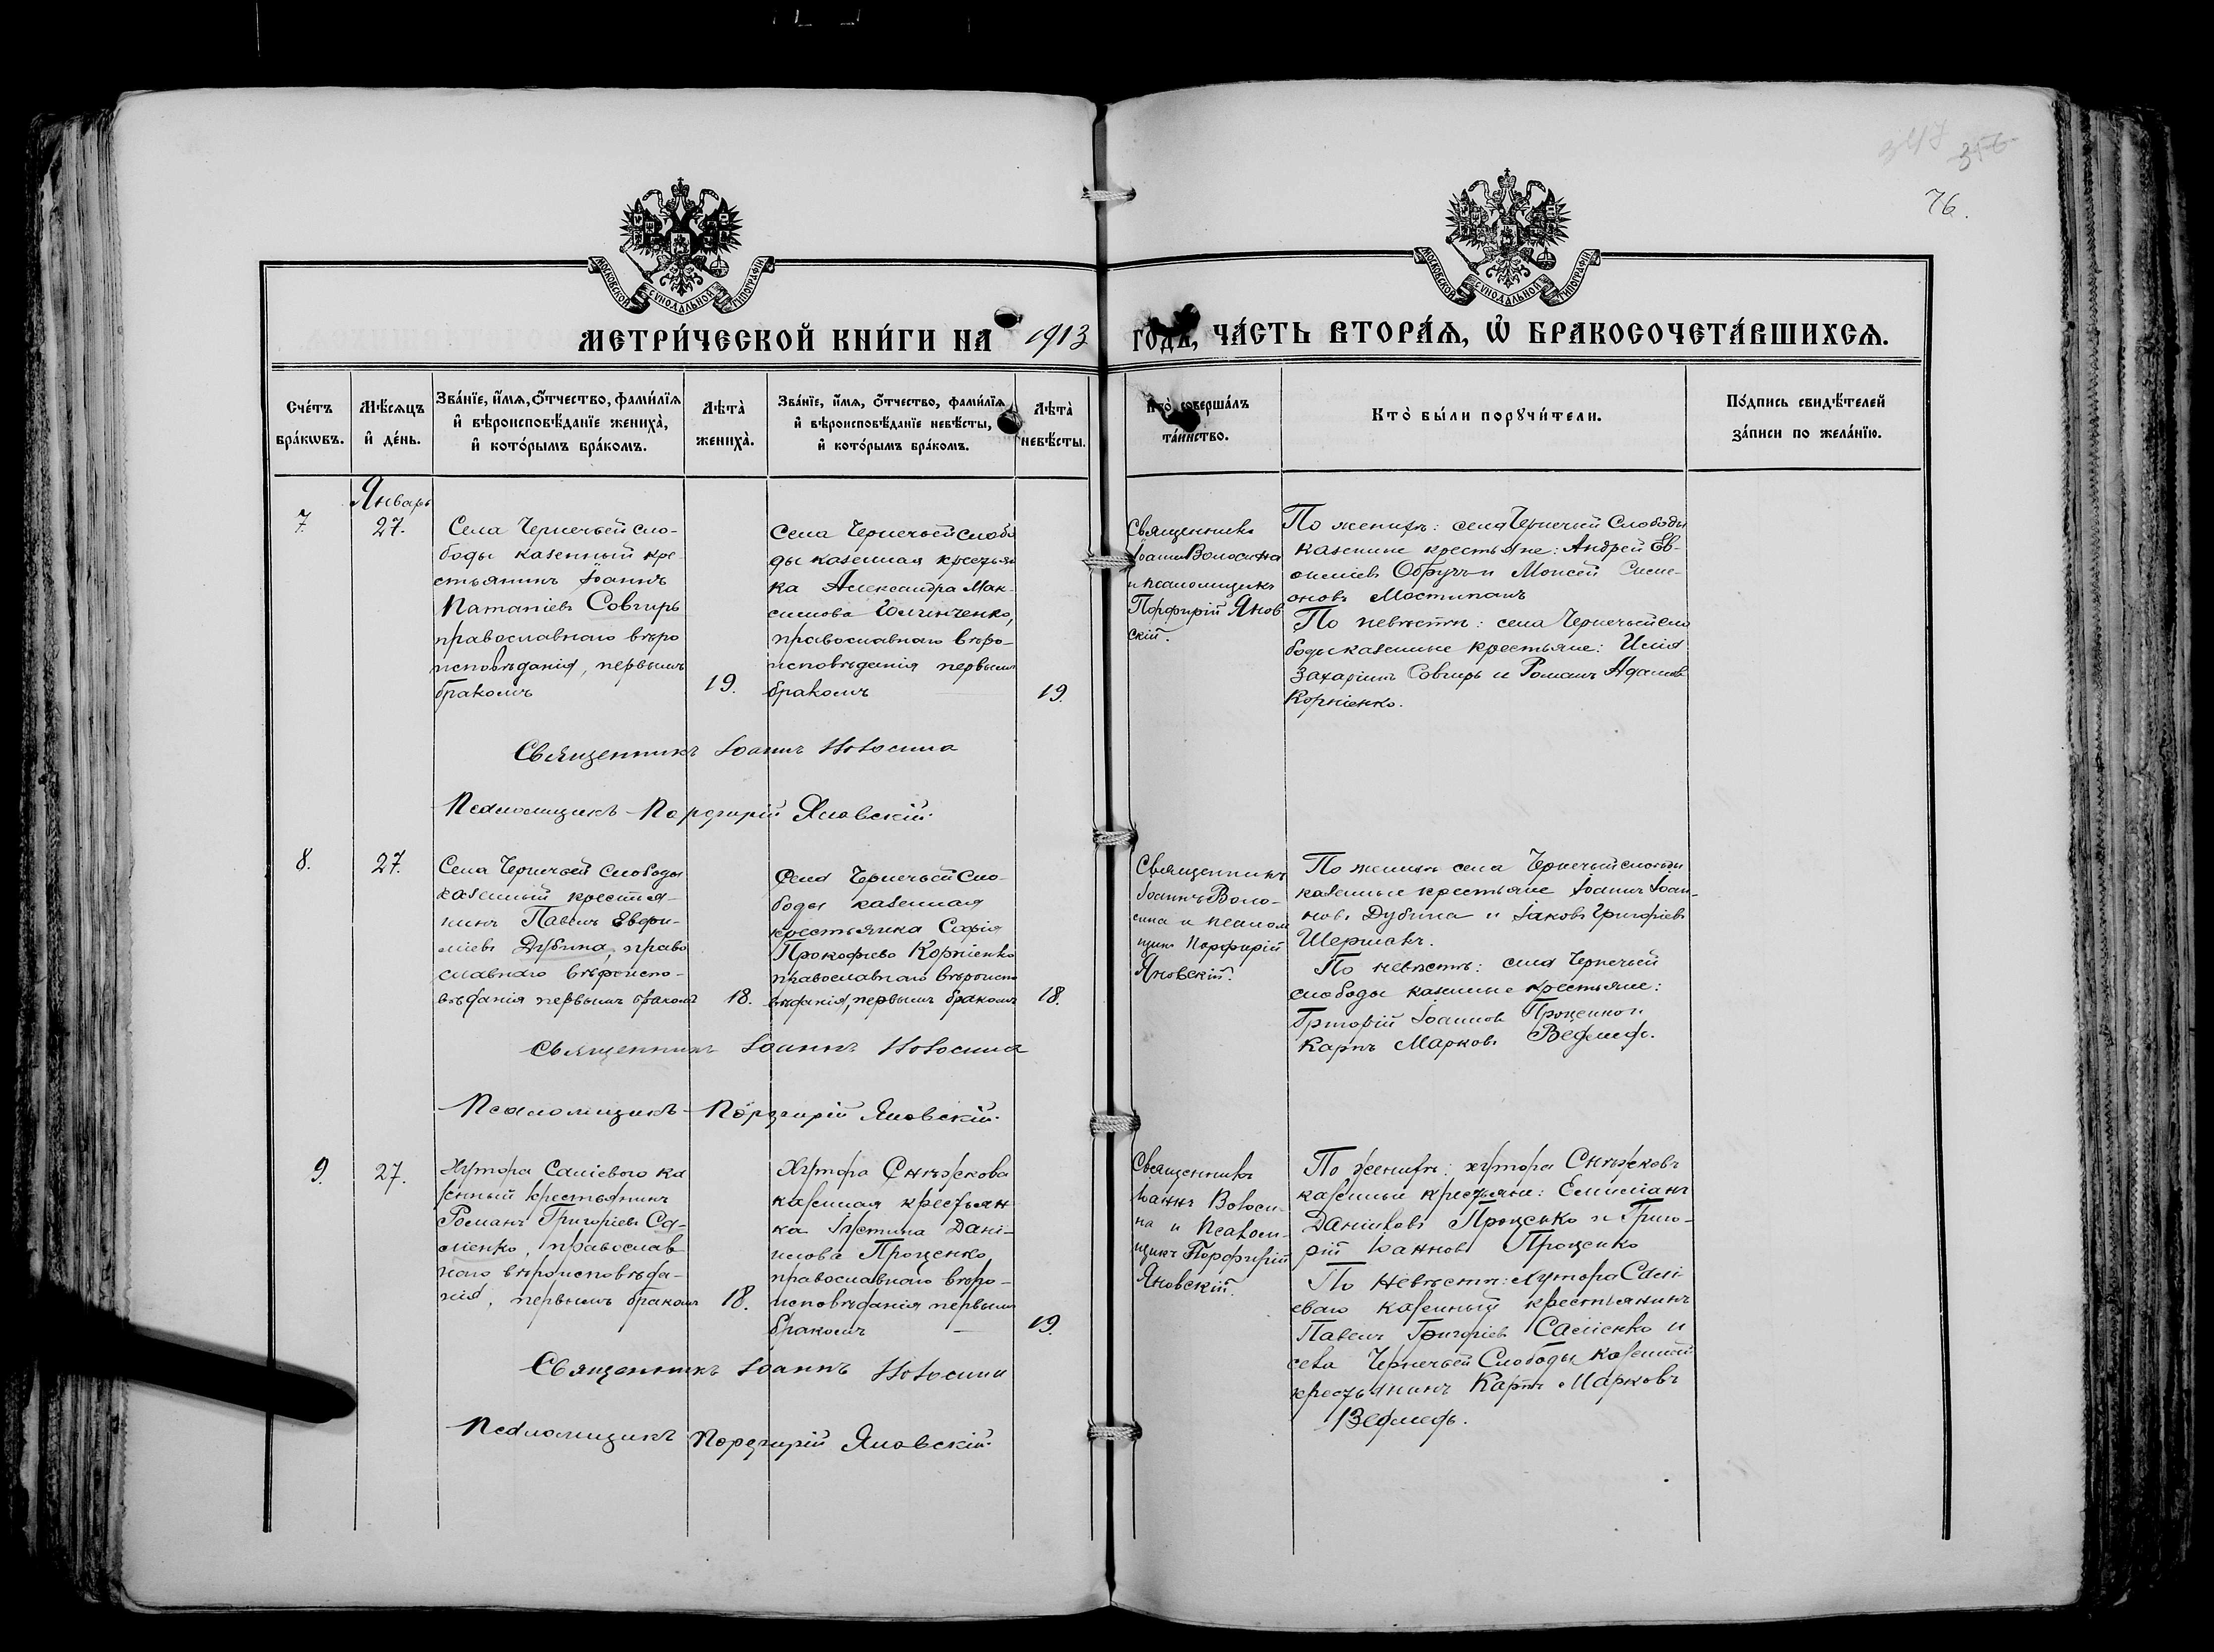 347 356
76.
МОСКОВСКОЙ СѴНОДАЛЬНОЙ ТИПОГРАФІИ
МОСКОВСКОЙ СѴНОДАЛЬНОЙ ТИПОГРАФІИ
МЕТРИ́ЧЕСКОЙ КНИ́ГИ НА 1913 ГОДЪ, ЧА́СТЬ ВТОРА́Ѧ, Ѽ БРАКОСОЧЕТА́ВШИХСѦ.
Сче́тъ
бра́кѡвъ.
Мѣ́сѧцъ
и҆ де́нь.
Зва́нїе, и҆́мѧ, ѻ҆́тчество, фами́лїѧ
и҆ вѣроисповѣ́данїе жениха̀,
и҆ кото́рымъ бра́комъ.
Лѣта̀
жениха̀.
Зва́нїе, и҆́мѧ, ѻ҆́тчество, фами́лїѧ
и҆ вѣроисповѣ́данїе невѣ́сты,
и҆ кото́рымъ бра́комъ.
Лѣта̀
невѣ́сты.
Кто̀ соверша́лъ
та́инство.
Кто̀ бы́ли порꙋчи́тели.
По́дпись свидѣ́телей
за́писи по жела́нїю.
Январь
7.
27.
Села Чернечьей Сло-
боды казенный кре-
стьянинъ Іоаннъ
Совгирь
православнаго вѣро
исповѣданія, первымъ
бракомъ
19.
Села Чернечьей Слобо
ды казенная крестьян
ка Александра Мак-
симова
православнаго вѣро-
исповѣданія первымъ
бракомъ
19.
Священникъ
Іоаннъ Волосина
и псаломщикъ
Порфирій Янов
скій.
По женихѣ: села Чернечьей Слободы
казенные крестьяне: Андрей Ев-
Обручъ и Моисей Симе-
оновъ
По невѣстѣ: села Чернечьей Сло
боды казенные крестьяне: Илія
Захаріинъ Совгирь и Романъ Адамовъ
Корніенко.
Священникъ Іоаннъ Волосина
Псаломщикъ Порфирій Яновскій.
8.
27.
Села Чернечьей Слободы
казенный крестья-
нинъ Павелъ Евфи-
міевъ Дубина, право
славнаго вѣроиспо-
вѣданія первымъ бракомъ
18.
Села Чернечьей Сло-
боды казенная
крестьянка Софія
Прокофіева Корніенко
православнаго вѣроиспо
вѣданія, первымъ бракомъ
18.
Священникъ
Іоаннъ Воло-
сина и псалом
щикъ Порфирій
Яновскій.
По женихѣ села Чернечьей слободы
казенные крестьяне Іоаннъ Іоан-
новъ Дубина и Іаковъ Григоріевъ
По невѣстѣ: села Чернечьей
слободы казенные крестьяне:
Григорій Іоанновъ Проценко и
Карпъ Марковъ Ведмедь.
Священникъ Іоаннъ Волосина
Псаломщикъ Порфирій Яновскій.
9.
27.
Хутора Саміевого ка
зенный крестьянинъ
Романъ Григоріевъ Са-
міенко, православ
наго вѣроисповѣда-
нія, первымъ бракомъ
18.
Хутора Снѣжкова
казенная крестьян
ка Іустина Дані-
илова Проценко,
православнаго вѣро-
исповѣданія первымъ
бракомъ —
19.
Священникъ
Іоаннъ Волоси-
на и Псалом-
щикъ Порфирій
Яновскій.
По женихѣ: хутора Снѣжковъ
казенные крестьяне: Емиліанъ
Даніиловъ Проценко и Григо-
рій Іоанновъ Проценко
По невѣстѣ: Хутора Самі-
еваго казенный крестьянинъ
Павелъ Григоріевъ Саміенко и
села Чернечьей Слободы казенный
крестьянинъ Карпъ Марковъ
Ведмедь.
Священникъ Іоаннъ Волосина
Псаломщикъ Порфирій Яновскій.